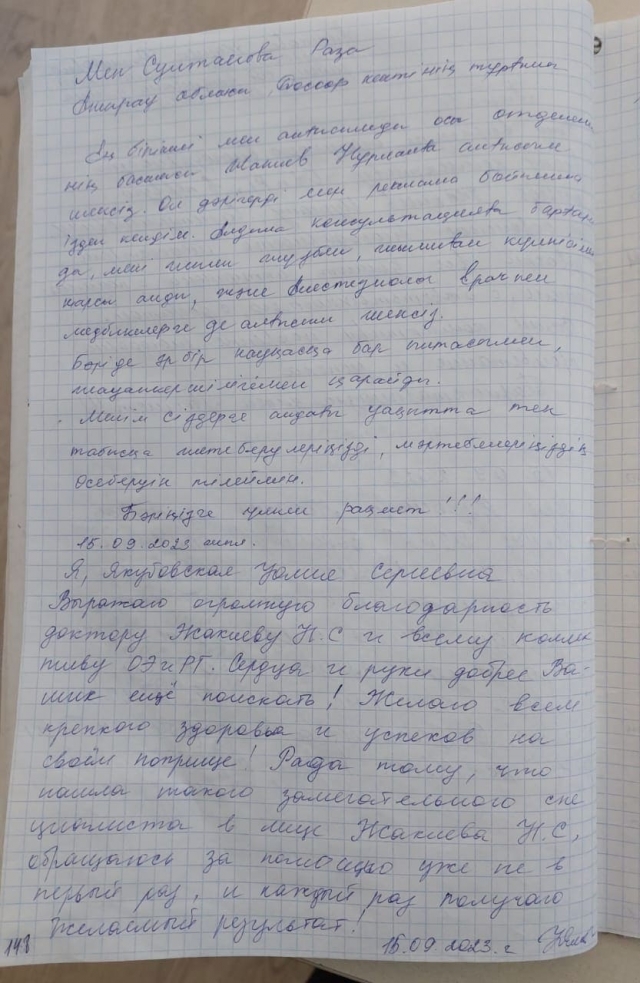 Мен Султанова Раза
Атырау облысы Доссор кентінің тұрғыны
Ең бірінші мен алғысымды осы отделени
нің басшысы Нұрланға алғысым
шексіз. Ол дәрігерді мен реклама бойынша
іздеп келдім. Алдына консультацияға барған
да, мені жылы жүзбен,
қарсы алды, және Анестезиолог врач пен
медбикелерге де алғысым шексіз.
Бәрі де әр бір науқасқа бар ынтасымен,
жауапкершілігімен қарайды.
Менің сіздерге алдағы уақытта тек
табысқа жете берулеріңізді, мәртебелеріңіздің
өсе беруін тілеймін.
Бәріңізге үлкен рахмет!!!
15.09.2023 жыл.
Я, Якубовская Юлия Сергеевна
Выражаю огромную благодарность
доктору Жакиеву Н.С и всему коллек
тиву ОЭиРГ. Сердца и руки добрее Ва-
ших ещё поискать! Желаю всем
крепкого здоровья и успехов на
своём поприще! Рада тому, что
нашла такого замечательного спе
циалиста в лице Жакиева Н.С,
обращаюсь за помощью уже не в
первый раз, и каждый раз получаю
желаемый результат!
148 15.09.2023.г